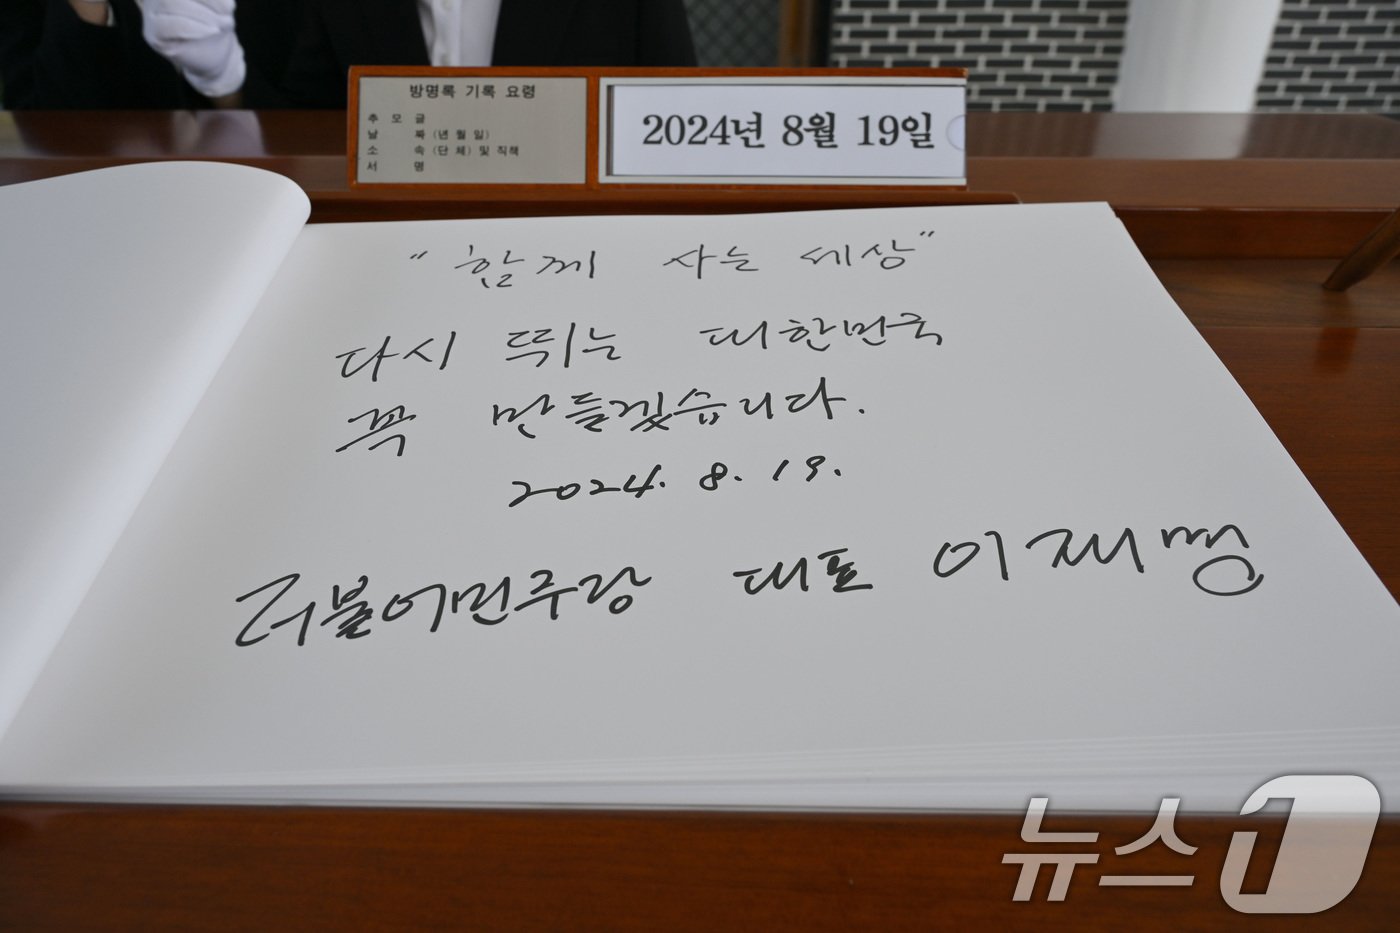 방명록 기록 요령
추 모 글
날 짜 (년 월 일)
소 속 (단 체) 및 직책
서 명
2024년 8월 19일
"함께 사는 세상"
다시 뛰는 대한민국
꼭 만들겠습니다.
2024. 8. 19.
더불어민주당 대표 이재명
뉴스1